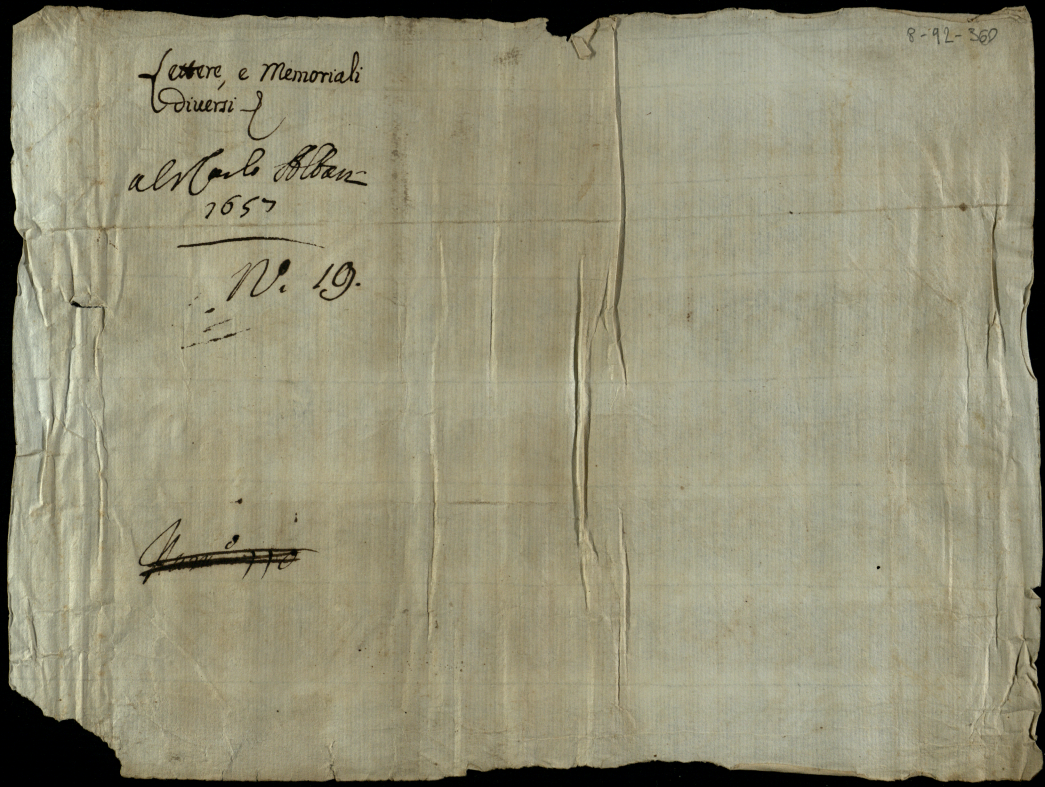 8-92-360
Lettere, e Memoriali
diuersi
al Carlo Alban
1657
N. 19.